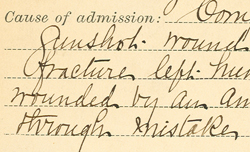 Cause of admission:
Gunshot wound
fracture left
wounded by an
through mistake